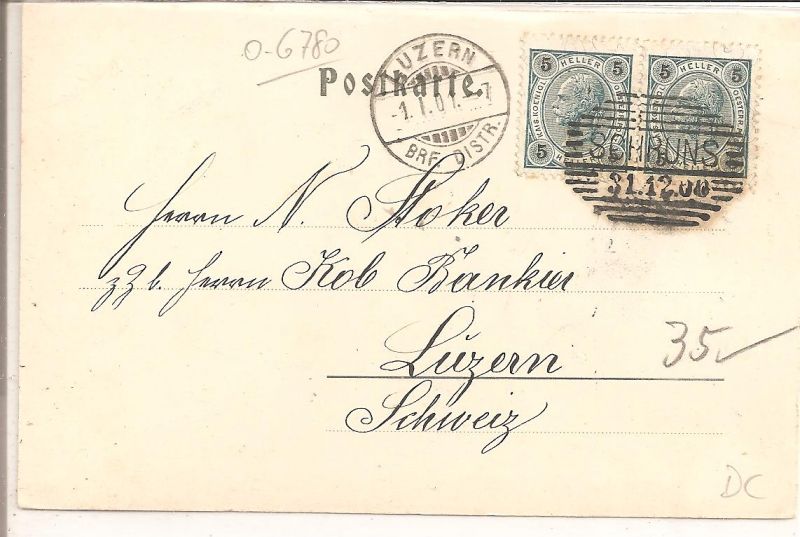 O-6780
Postkarte.
LUZERN
-1.I.01.-7
BRF. DISTR.
5 HELLER 5
KAIS. KOENIGL.
5
5 HELLER 5
OESTERR.
SCHRUNS
31.12.00
Herrn N. Stoker
zZ b. Herrn Kob Bankier
Luzern
Schweiz
35
DC